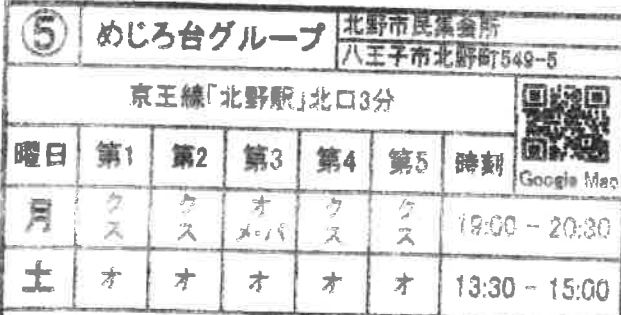 ⑤ めじろ台グループ 北野市民集会所
八王子市北野町549-5
京王線「北野駅」北口3分
Google Map
曜日 第1 第2 第3 第4 第5 時刻
月 クス クス オメ・バ クス クス 19:00 - 20:30
土 オ オ オ オ オ 13:30 - 15:00